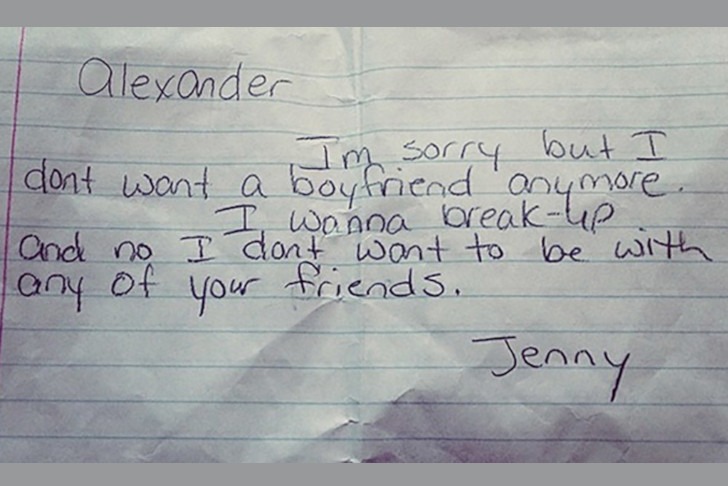 Alexander
Im sorry but I
dont want a boyfriend anymore.
I wanna break-up
and no I dont want to be with
any of your friends.
Jenny